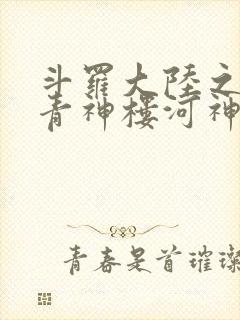 斗羅大陸之
青神樓河神
青春是首璀璨